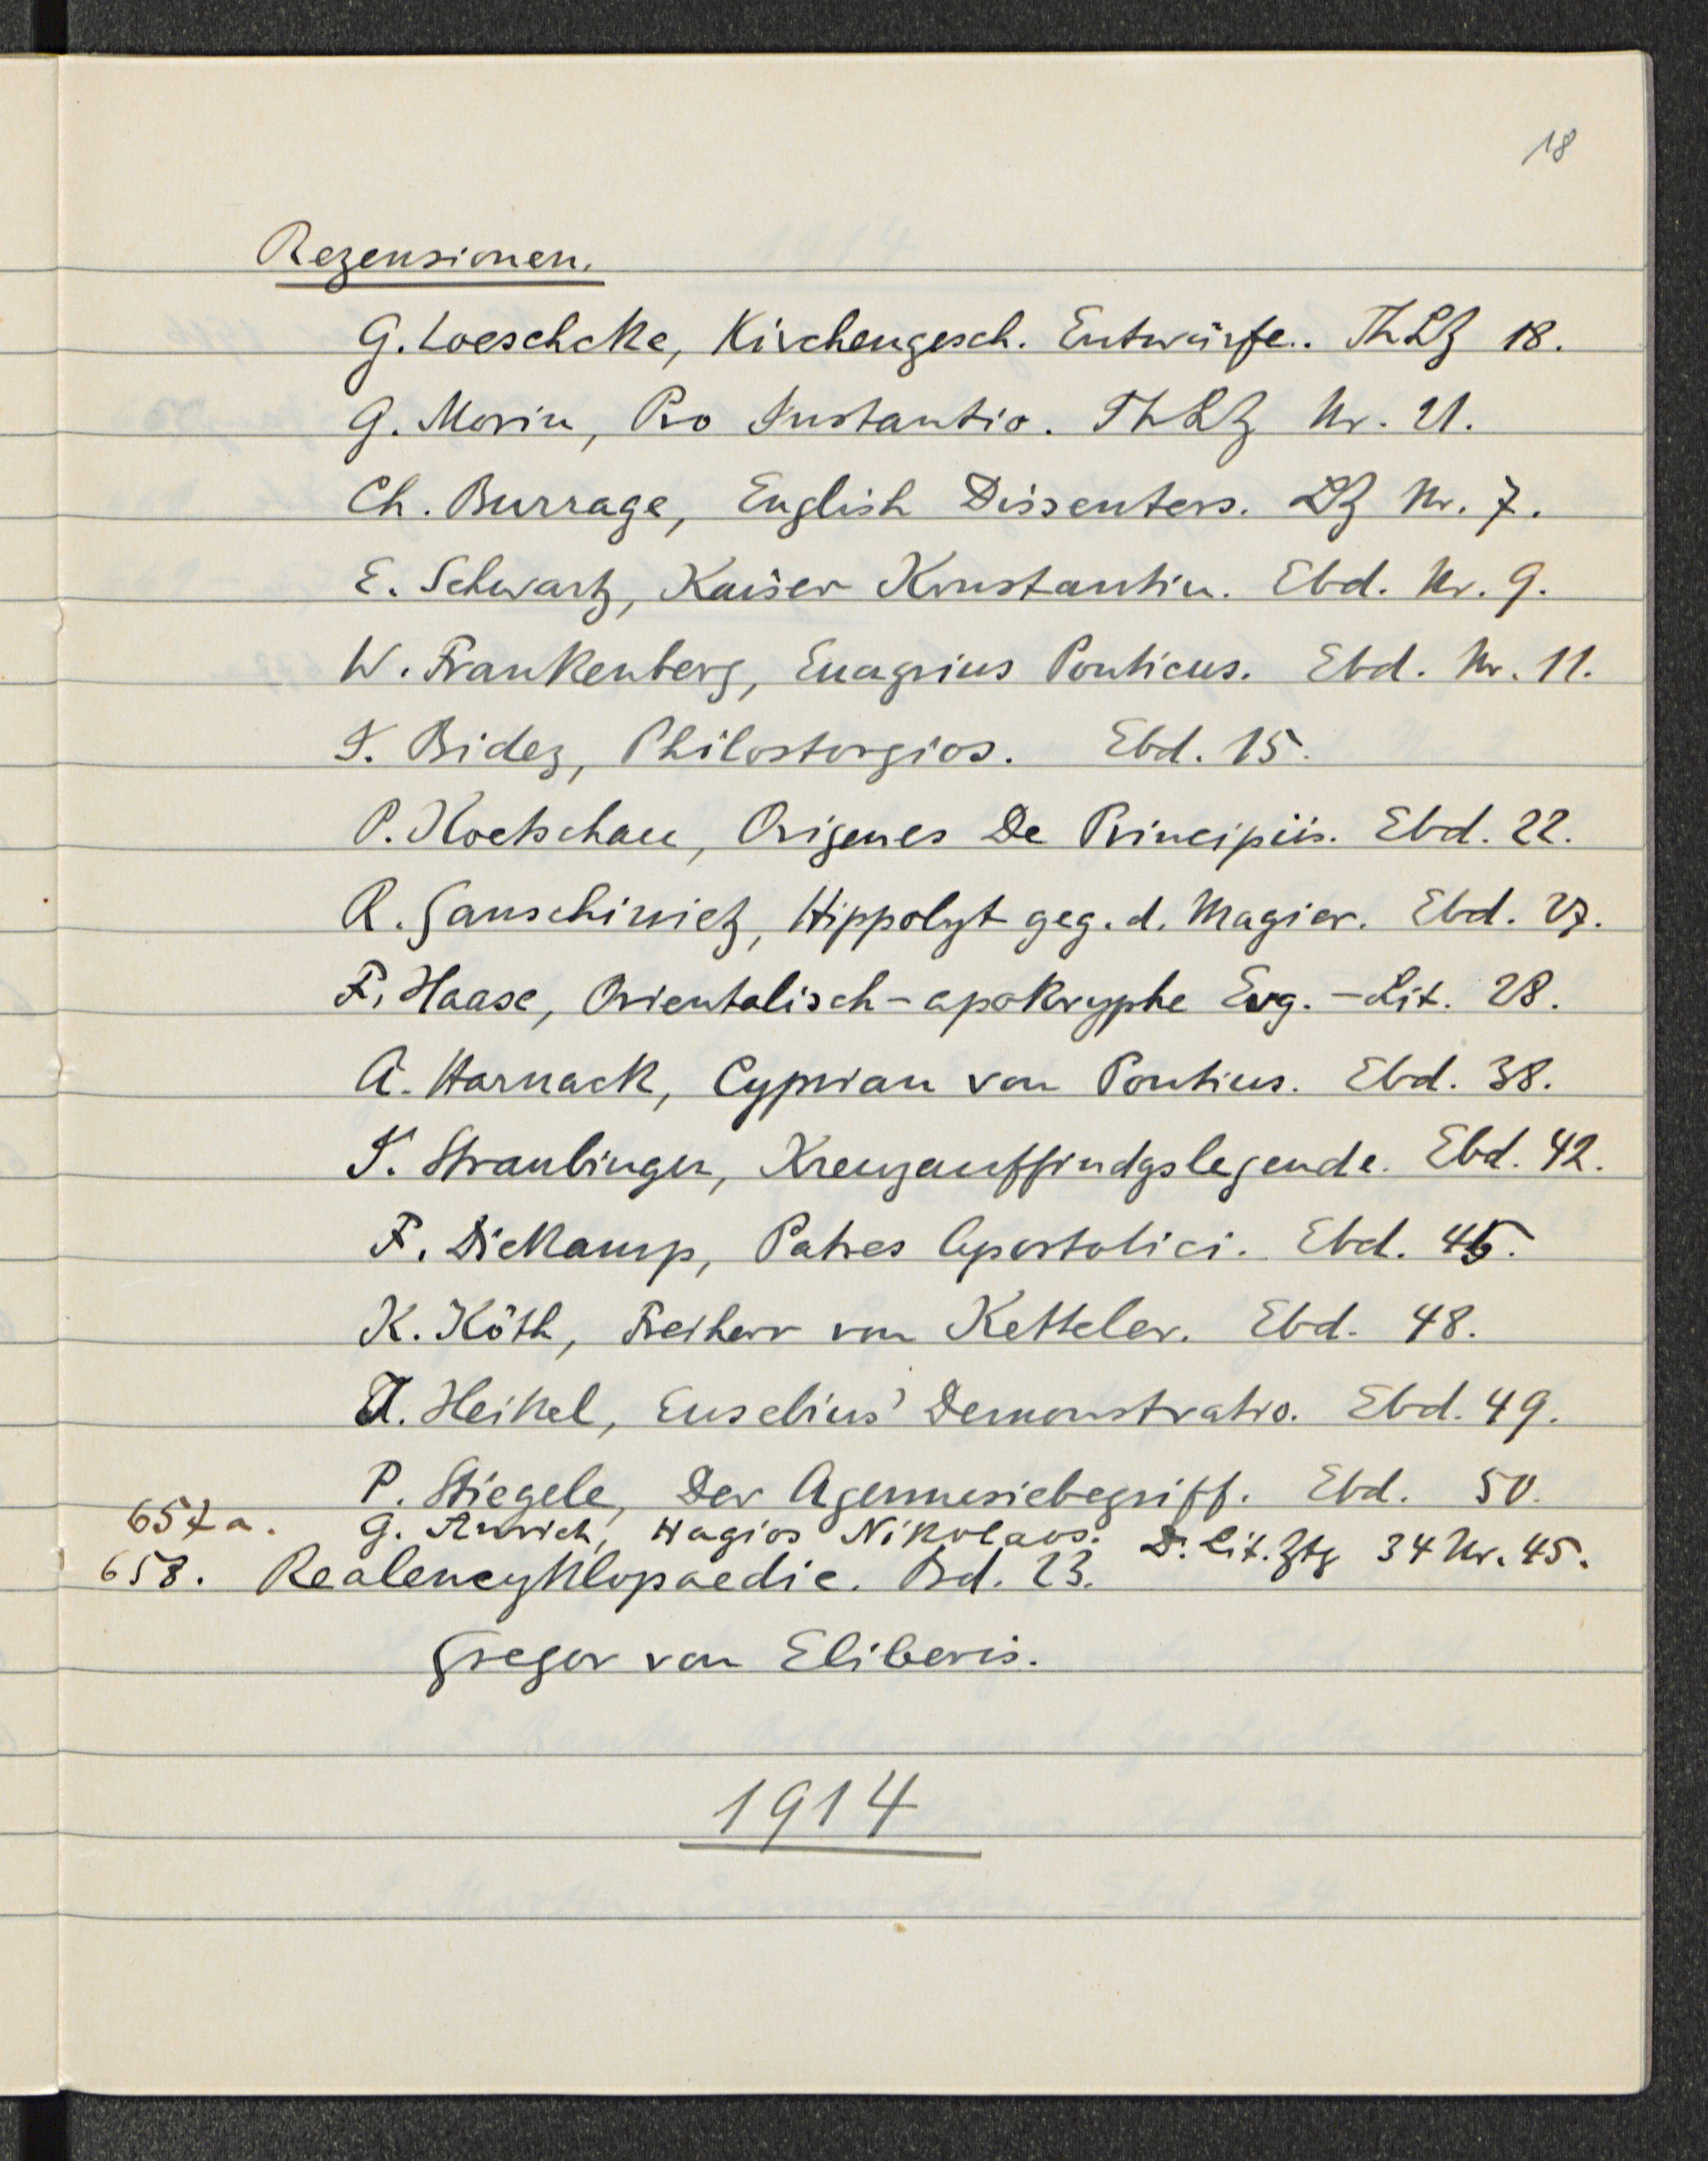 18
Rezensionen.
G. Loeschcke, Kirchengesch. Entwürfe. ThLZ 18.
G. Morin, Pro Instantio. ThLZ Nr. 21.
Ch. Burrage, English Dissenters. LZ Nr. 7.
E. Schwartz, Kaiser Konstantin. Ebd. Nr. 9.
W. Frankenberg, Euagrius Ponticus. Ebd. Nr. 11.
J. Bidez, Philostorgios. Ebd. 15.
P. Koetschau, Origenes De Principiis. Ebd. 22.
R. Ganschinietz, Hippolyt geg. d. Magier. Ebd. 27.
F. Haase, Orientalisch-apokryphe Evg.-Lit. 28.
A. Harnack, Cyprian von Pontius. Ebd. 38.
J. Straubinger, Kreuzauffindgslegende. Ebd. 42.
F. Diekamp, Patres Apostolici. Ebd.
K. Köth, Freiherr von Ketteler. Ebd. 48.
Heikel, Eusebius' Demonstratio. Ebd. 49.
P. Stiegele, Der Agennesiebegriff. Ebd. 50.
657a. G. Anrich, Hagios Nikolaos. D. Lit. Ztg 34 Nr. 45.
658. Realencyklopaedie. Bd. 23.
Gregor von Eliberis.
1914